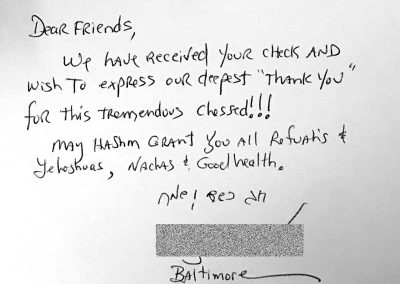 Dear Friends,
We have received your check and
wish to express our deepest "Thank You"
for this tremendous chessed!!!
May Hashm grant you all Refuahs &
Yehoshuas, Nachas & Good health.
חג כשר ושמח
Baltimore